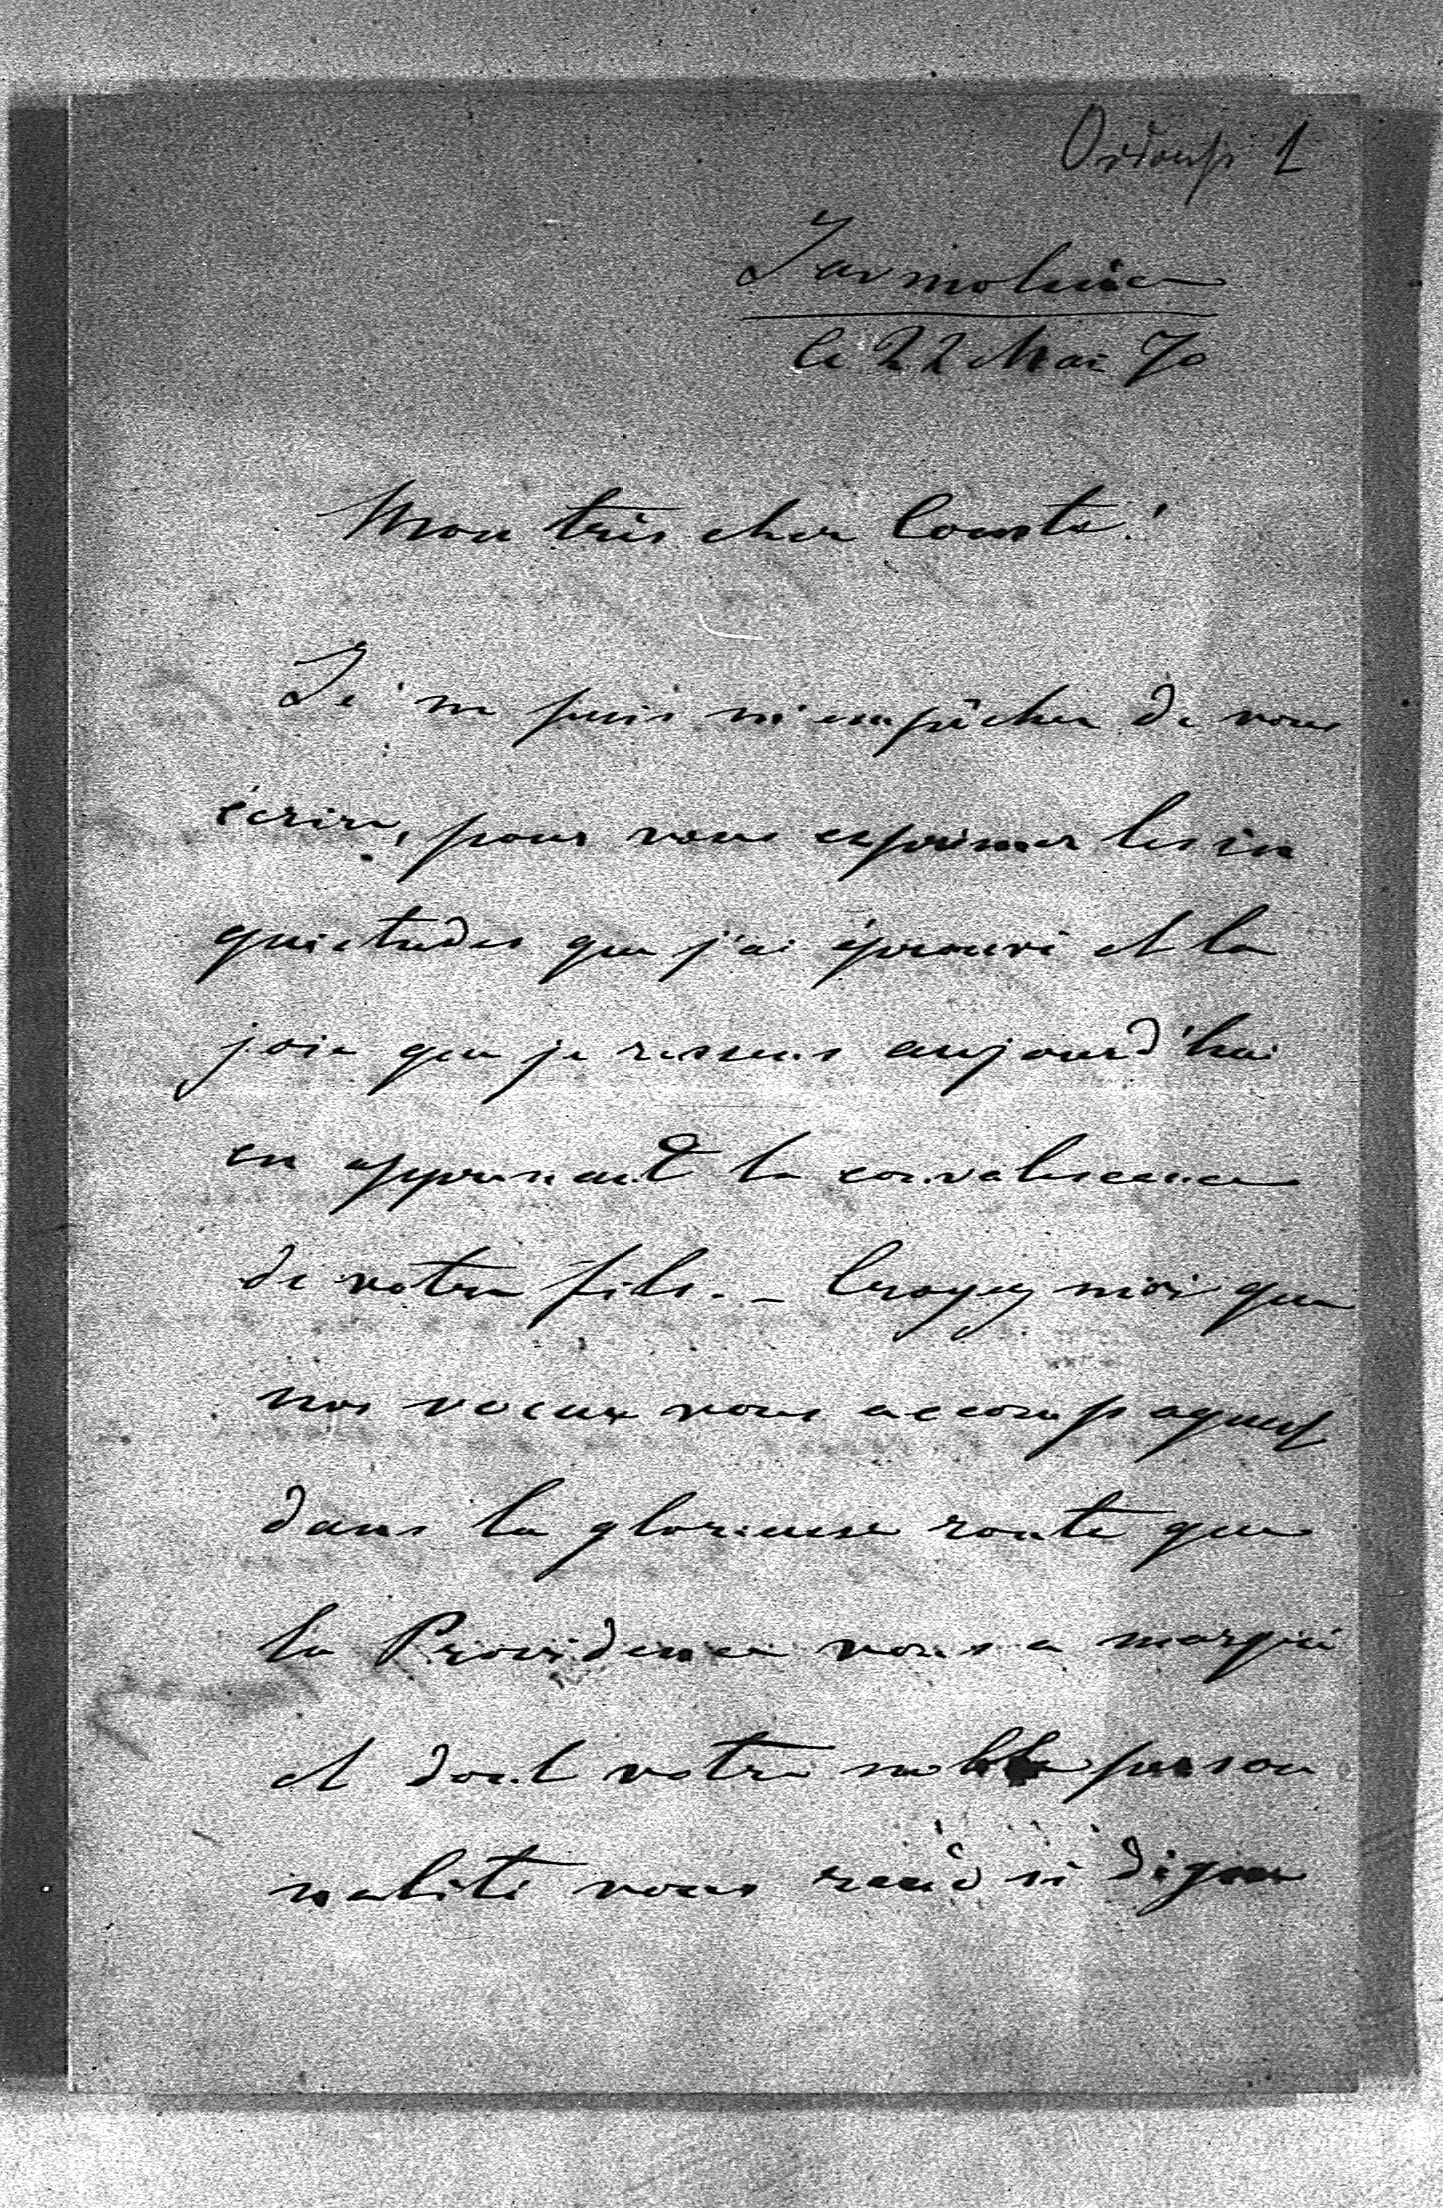 le 22 Mai 70
Mon très cher Comte!
Je ne puis m'empêcher de vous
écrire, pour vous exprimer les in
quietudes que j'ai éprouvé et la
joie que je ressens aujourd'hui
en apprenant la convalescence
de votre fils. _ Croyez moi que
nos voeux vous accompagnent
dans la glorieuse route que
la Providence vous a marqué
et dont votre noble person
nalité vous rend si digne